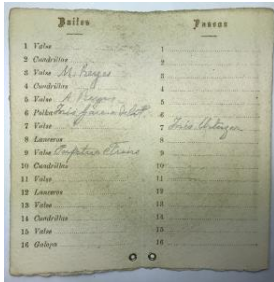 Bailes
1 Valse
2 Cuadrillas
3 Valse M. Reyes
4 Cuadrillas
5 Valse A. Reyes
6 Polka
7 Valse
8 Lanceros
9 Valse
10 Cuadrillas
11 Valse
12 Lanceros
13 Valse
14 Cuadrillas
15 Valse
16 Galopa
Paseos
1
2
3
4
5
6
7 Inés
8
9
10
11
12
13
14
15
16